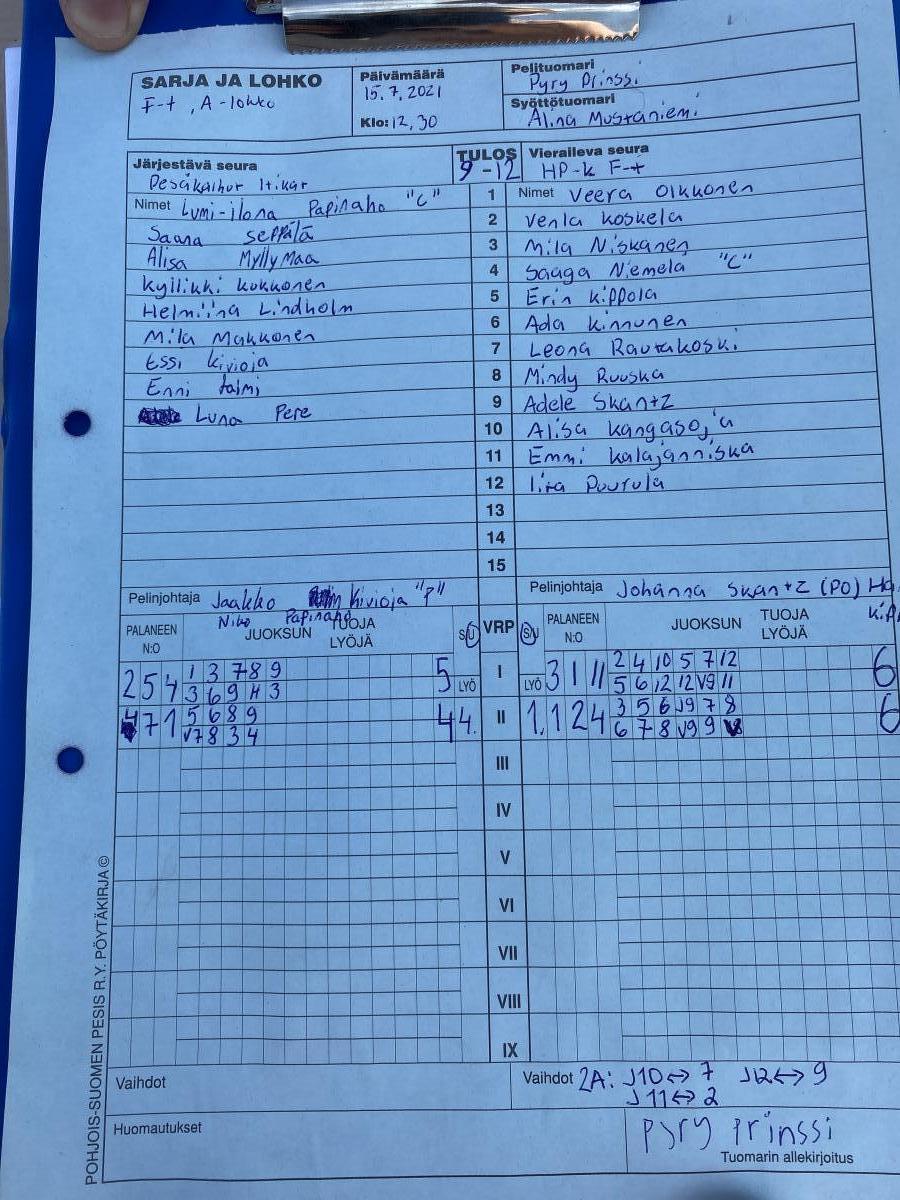 SARJA JA LOHKO
F-t, A-lohko
Päivämäärä
15.7.2021
Klo: 12,30
Pelituomari
Pyry Prinssi
Syöttötuomari
Alina Mustaniemi
Järjestävä seura
Pesäkaihur Itikat
TULOS
9-12
Vieraileva seura
HP-K F-t
Nimet Lumi-ilona Papinaho "C"
1 Nimet Veera Olkkonen
Saana Seppälä
2 Venla Koskela
Alisa Myllymaa
3 Mila Niskanen
Kyllikki Kukkonen
4 Saaga Niemelä "C"
Helmiina Lindholm
5 Erin Kippola
Mila Makkonen
6 Ada Kinnunen
Essi Kivioja
7 Leona Rautakoski
Enni talmi
8 Mindy Ruuska
Luna Pere
9 Adele Skantz
10 Alisa Kangasoja
11 Emmi Kalajänniska
12 Iira Puurula
13
14
15
Pelinjohtaja Jaakko Kivioja "P"
Niko Papinaho
Pelinjohtaja Johanna Skantz (PO)
PALANEEN N:O
JUOKSUN TUOJA LYÖJÄ
S/U
VRP
S/U
PALANEEN N:O
JUOKSUN TUOJA LYÖJÄ
2 5 4 1 3 7 8 9 5 LYÖ
3 6 9 H 3
I
LYÖ 3 1 11 2 4 10 5 7 12 6
5 6 12 12 V9 11
4 7 1 5 6 8 9 4 4.
V7 8 3 4
II
1. 1 2 4 3 5 6 J9 7 8 6
6 7 8 J9 9
III
IV
V
VI
VII
VIII
IX
Vaihdot
Vaihdot 2A: J10↔7 J12↔9
J11↔2
Huomautukset
Pyry Prinssi
Tuomarin allekirjoitus
POHJOIS-SUOMEN PESIS R.Y. PÖYTÄKIRJA ©